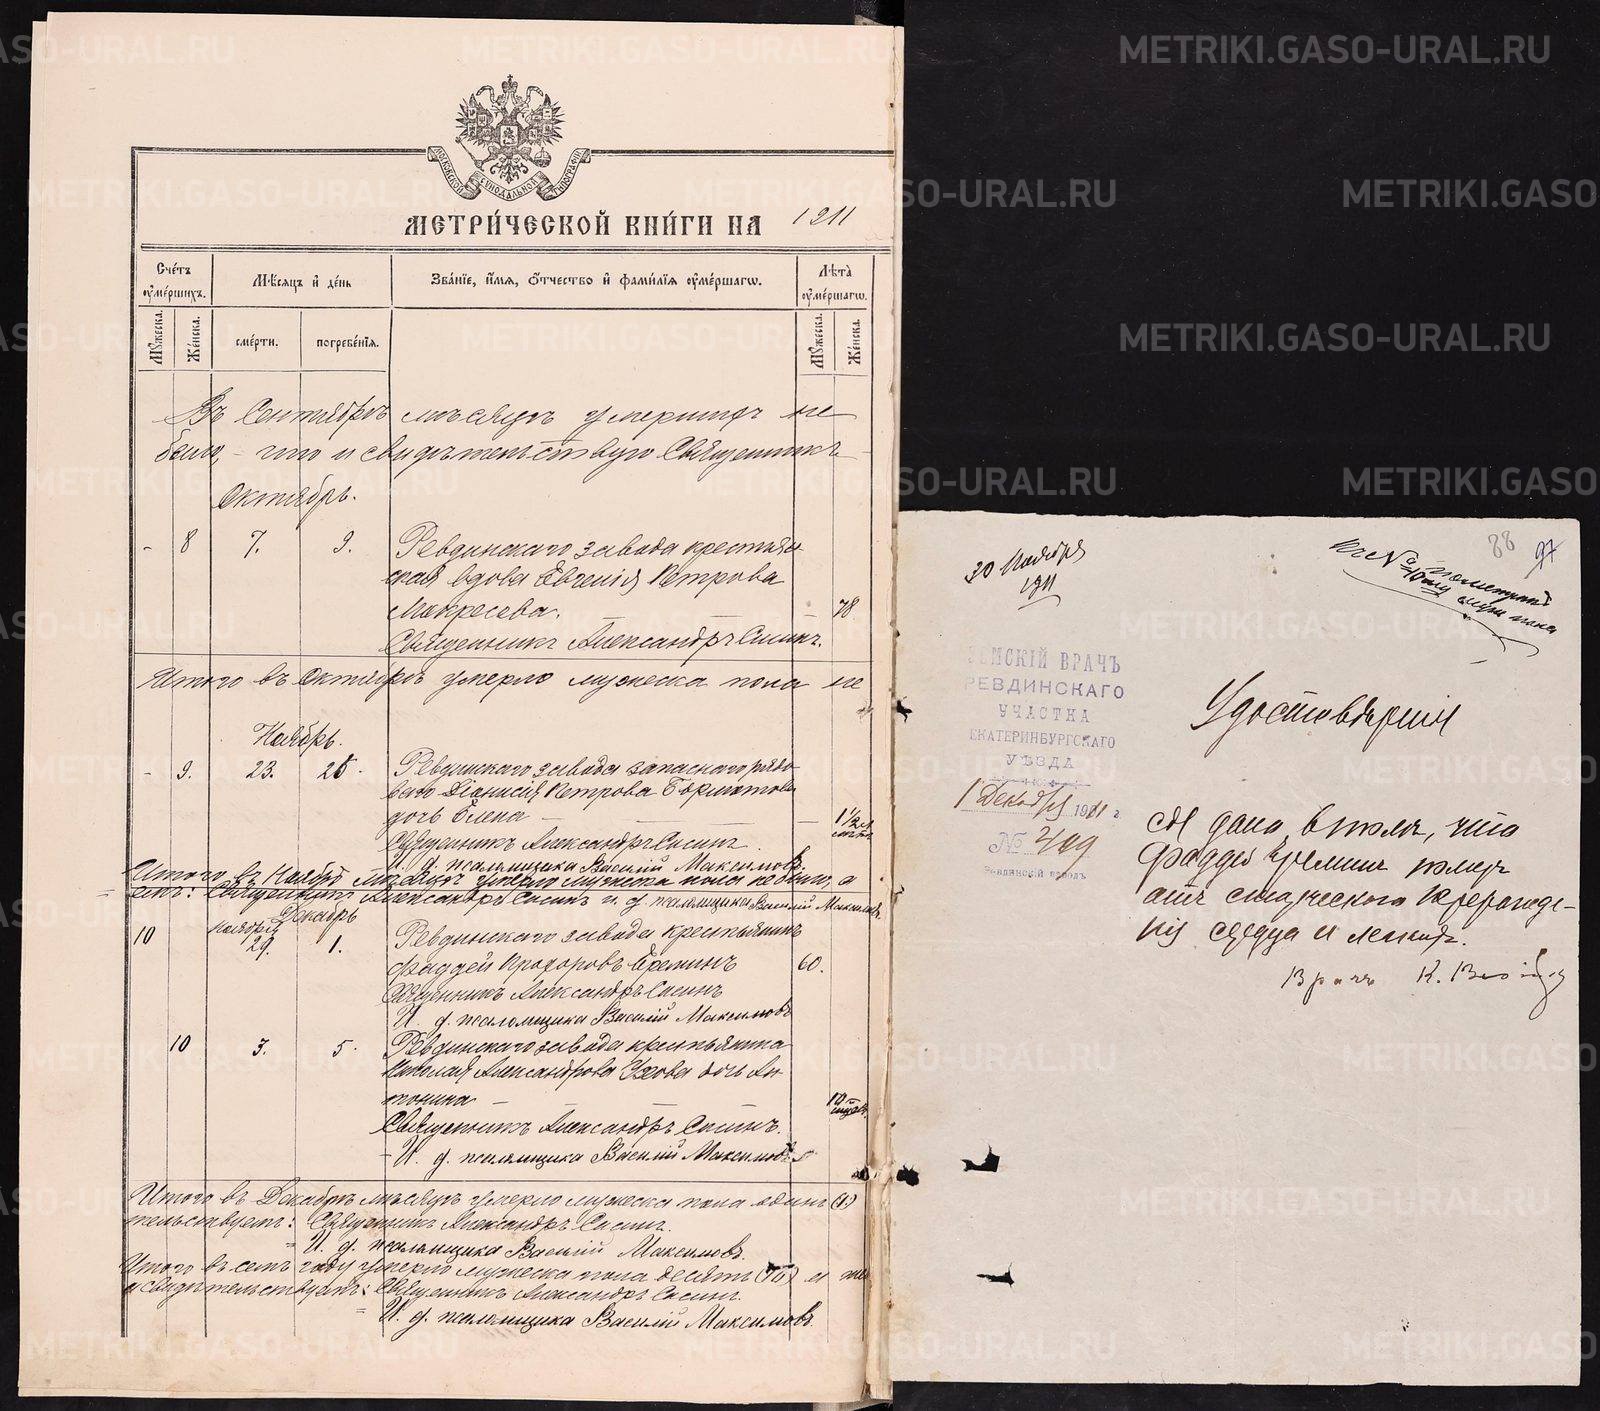 МОСКОВСКОЙ СѴНОДАЛЬНОЙ ТИПОГРАФІИ
МЕТРИ́ЧЕСКОЙ КНИ́ГИ НА 1911
Сче́тъ ᲂу҆ме́ршихъ.
Мѣ́сяцъ и҆ де́нь
Зва́нїе, и҆́мя, ѻ҆́тчество и҆ фами́лїя ᲂу҆ме́ршагѡ.
Лѣ́та ᲂу҆ме́ршагѡ.
Мꙋ́жеска.
Же́нска.
сме́рти.
погребе́нїя.
Мꙋ́жеска.
Же́нска.
Въ Сентябрѣ мѣсяцѣ умершихъ не
было, - что и свидѣтельствую Священникъ
Октябрь.
- 8 7. 9. Ревдинскаго завода крестьян-
ская вдова Евгенія Петрова
Мокресева. — — 78
Священникъ Александръ Сасинъ.
Итого въ Октябрѣ умерло мужеска пола не
Ноябрь.
- 9. 23. 25. Ревдинскаго завода запаснаго рядо-
ваго Діонисія Петрова Бормотова
дочь Елена — — 1 1/2
Священникъ Александръ Сасинъ.
И. д. псаломщика Василій Максимовъ.
Итого въ Ноябрѣ мѣсяцѣ умерло мужеска пола не было, а
Священникъ Александръ Сасинъ и. д. псаломщика Василій Максимовъ.
Декабрь
Ноября
10 29. 1. Ревдинскаго завода крестьянинъ
Фаддей Прохоровъ Ереминъ 60.
Священникъ Александръ Сасинъ
И. д. псаломщика Василій Максимовъ
10 3. 5. Ревдинскаго завода крестьянина
Николая Александрова Ухова дочь Ан-
тонина — — 10
Священникъ Александръ Сасинъ.
И. д. псаломщика Василій Максимовъ
Итого въ Декабрѣ мѣсяцѣ умерло мужеска пола одинъ (1)
тельствуетъ: Священникъ Александръ Сасинъ.
И. д. псаломщика Василій Максимовъ.
Итого въ семъ году умерло мужеска пола десять (10) и же
и свидѣтельствуетъ: Священникъ Александръ Сасинъ.
И. д. псаломщика Василій Максимовъ.
30 Ноября
1911
88 97
ЗЕМСКІЙ ВРАЧЪ
РЕВДИНСКАГО
УЧАСТКА
ЕКАТЕРИНБУРГСКАГО
УѢЗДА
1 Декабря 1911 г.
№ 409
Ревдинскій заводъ
Удостовѣреніе
Сіе дано въ томъ, что
Фаддей Ереминъ умеръ
отъ старческаго перерожде-
нія сердца и легкихъ.
Врачъ К.
METRIKI.GASO-URAL.RU